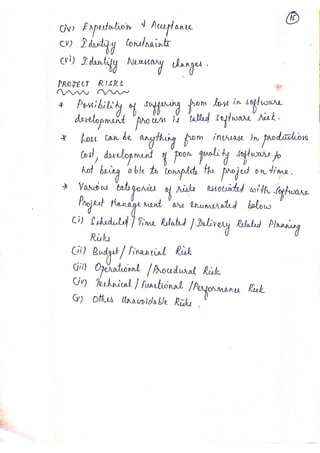 15
(iv) Expectation & Acceptance
(v) Identify Constraints
(vi) Identify Necessary changes.
PROJECT RISKS
* Possibility of suffering from loss in software
development process is called software risk.
* Loss can be anything from increase in production
cost, development of poor quality software to
not being able to complete the project on time.
* Various categories of risks associated with software
Project Management are enumerated below
(i) Scheduled / Time Related / Delivery Related Planning
Risks
(ii) Budget / Financial Risk
(iii) Operational / Procedural Risk
(iv) Technical / Functional / Performance Risk
(v) Other Unavoidable Risks.